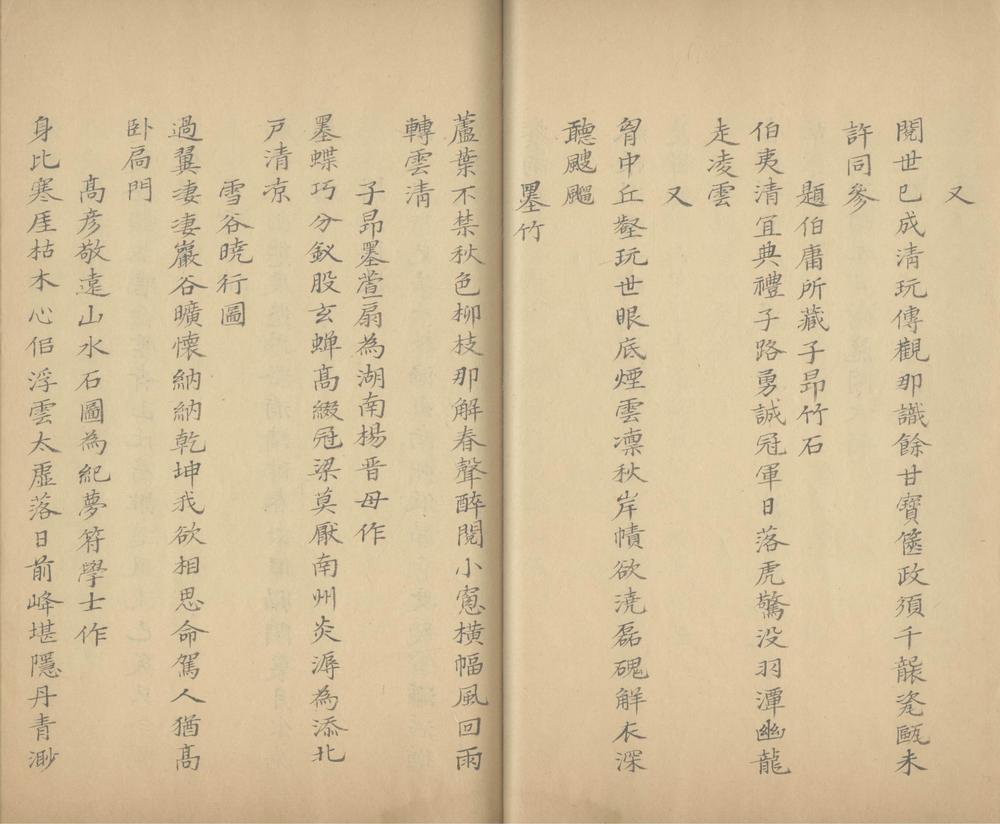 又
閱世已成清玩傳觀那識餘甘寶薩政須千襲瓷甌未
許同參
題伯庸所藏子昂竹石
伯夷清宜典禮子路勇誠冠軍日落虎驚没羽潭幽龍
走凌雲
又
胷中丘壑玩世眼底煙雲凛秋岸幘欲澆磊磈解衣深
聽颼飀
墨竹
蘆葉不禁秋色柳枝那解春聲醉閱小窻橫幅風回雨
轉雲淸
子昂墨萱扇為湖南楊晋母作
墨蝶巧分釵股玄蟬高綴冠梁莫厭南州炎溽為添北
戸清凉
雪谷曉行圖
過翼凄凄巖谷曠懷納納乾坤我欲相思命駕人猶高
卧扃門
高彦敬遠山水石圖為紀夢符學士作
身比寒厓枯木心侣浮雲太虛落日前峰堪隱丹青渺